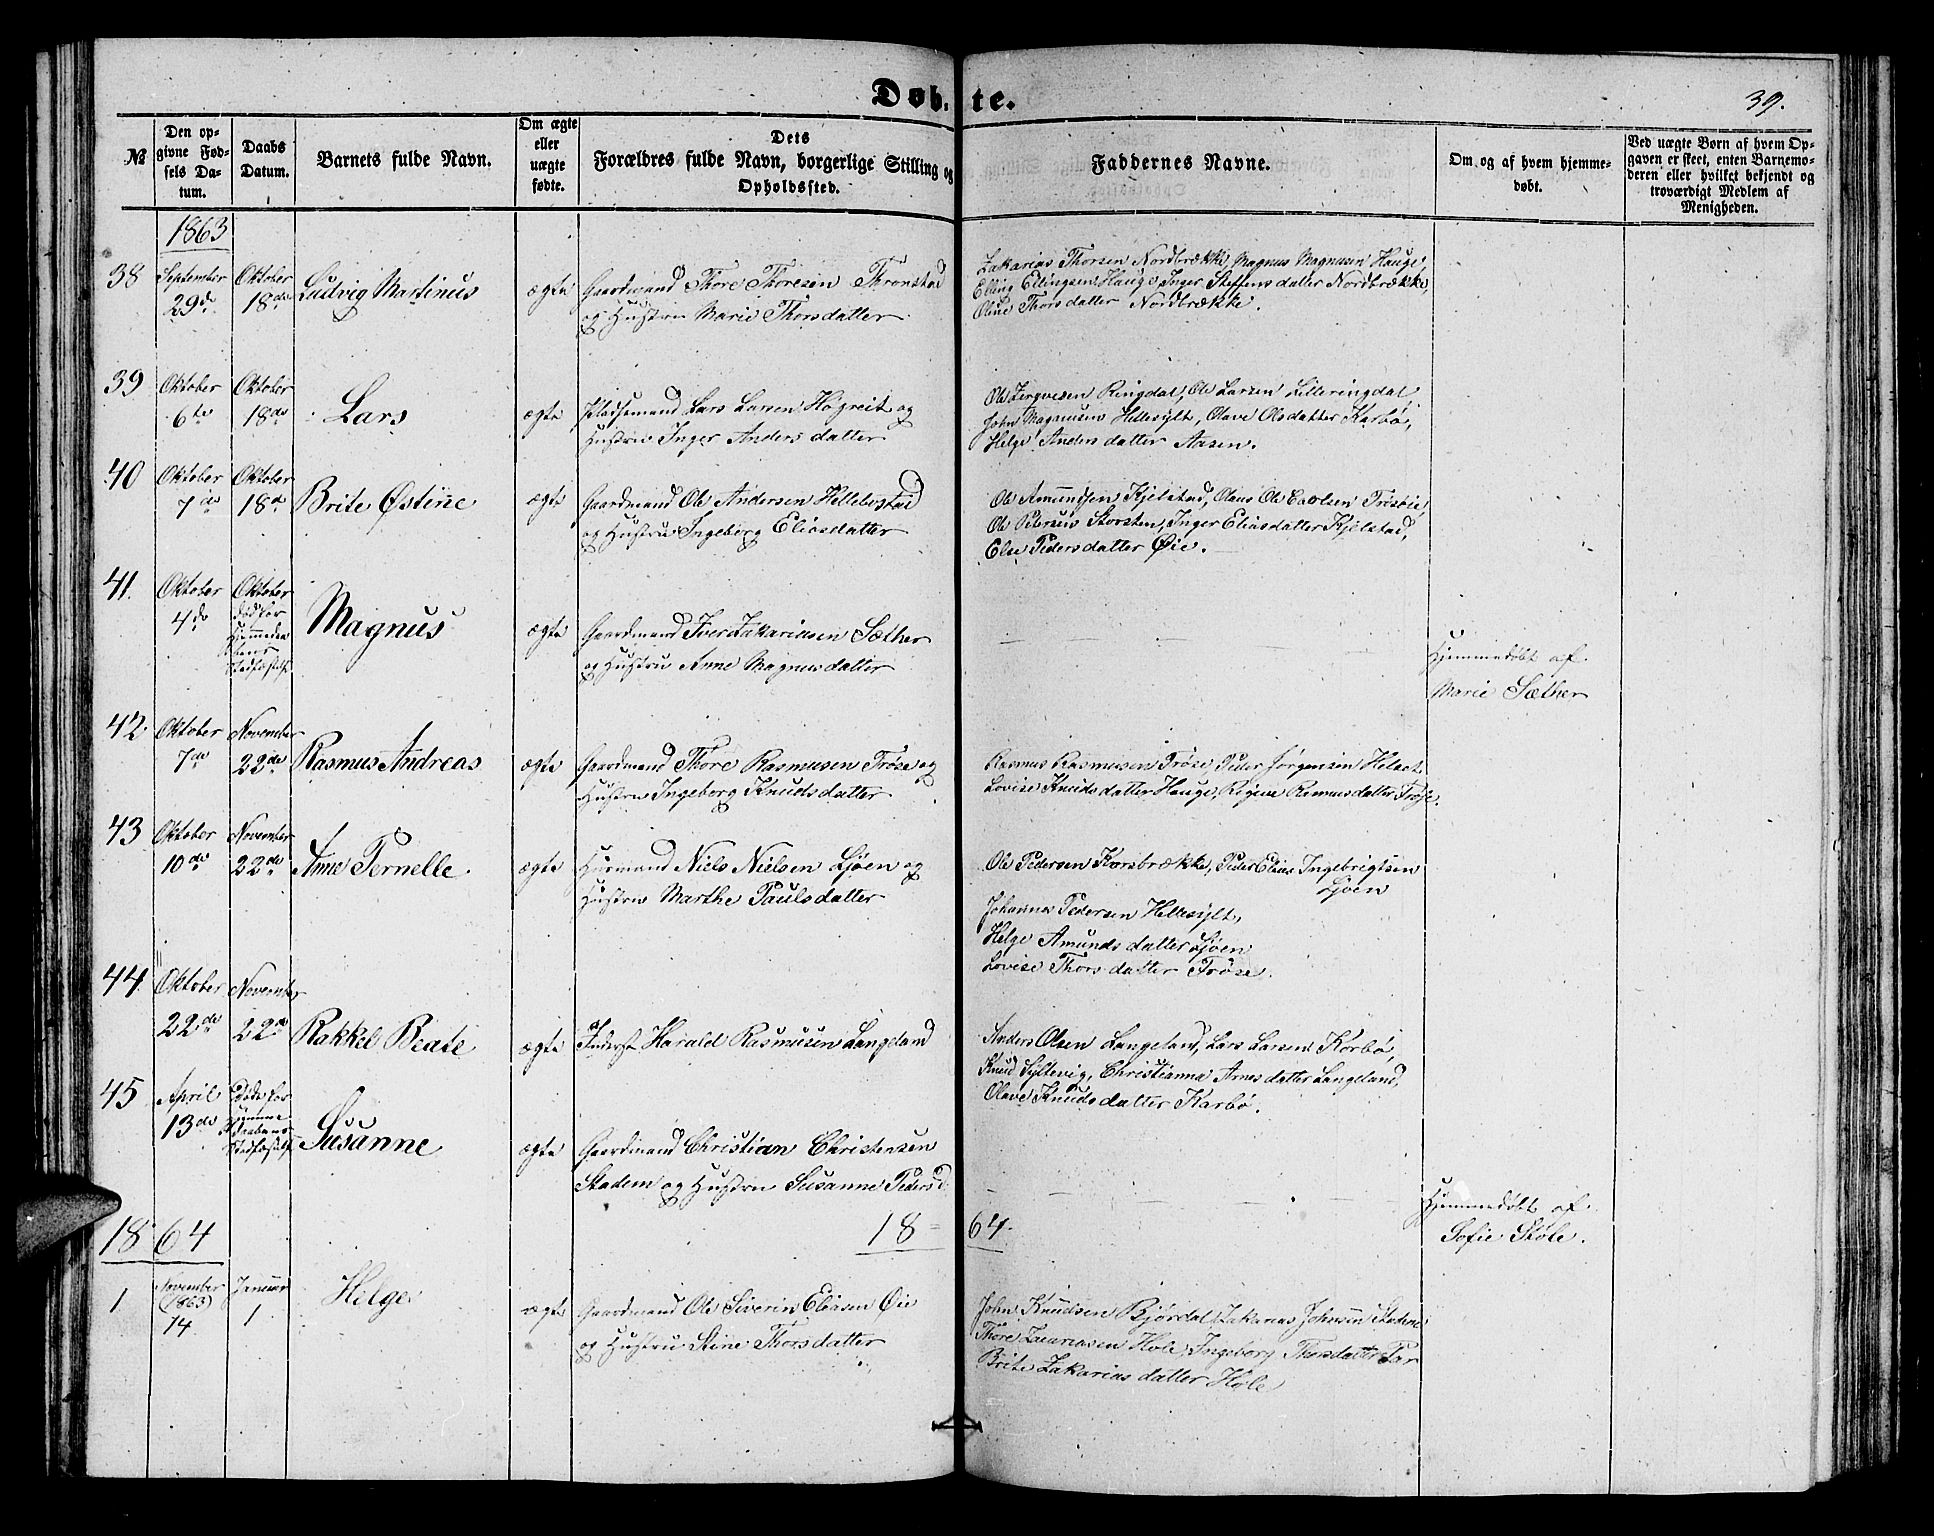 Døb- te.
39.
№
Den op-
givne Fød-
sels Da-
tum.
Daabs
Datum.
Barnets fulde Navn.
Om ægte
eller
uægte
fødte.
Dets
Forældres fulde Navn, borgerlige Stilling og
Opholdssted.
Faddernes Navne.
Om og af hvem hjemme-
døbt.
Ved uægte Børn af hvem Op-
gaven er skeet, enten Barnemo-
deren eller hvilket bekjendt og
troværdigt Medlem af
Menigheden.
1863
38
September
29de
Oktober
18de
Ludvig Martinus
ægte
Gaardmand Thore Thoresen Tronstad
og Hustru Marie Thorsdatter
Zakarias Thorsen Nordbrække, Magnus Magnusen Hauge,
Elling Ellingsen Hauge, Inger Steffensdatter Nordbrække,
Oline Thorsdatter Nordbrække.
39
Oktober
6te
Oktober
18de
Lars
ægte
Pladsemand Lars Larsen Høgreit og
Hustru Inger Andersdatter
Ole Ringdal, Ole Larsen Lilleringdal,
John Magnusen Hellesylt, Olave Olsdatter Karbø,
Helge Andersdatter Aasen.
40
Oktober
7de
Oktober
18de
Brite Østine
ægte
Gaardmand Ole Andersen Hellebostad
og Hustru Ingeborg Eliasdatter
Ole Amundsen Kjelstad, Olaus Ole Carlsen Frisøie,
Ole Petersen Storsten, Inger Eliasdatter Kjelstad,
Else Pedersdatter Øie.
41.
Oktober
4de
Oktober
død før
Hjemmedaa
bens
Stadfæstelse
Magnus
ægte
Gaardmand Iver Zakariasen Sæther
og Hustru Anne Magnusdatter
Hjemmedøbt af
Marie Sæther
42.
Oktober
7de
November
22de
Rasmus Andreas
ægte
Gaardmand Thore Rasmusen Frøse og
Hustru Ingeborg Knudsdatter
Rasmus Rasmusen Frøse, Peder Jørgensen Helset
Lovise Knudsdatter Hauge, Regine Rasmusdatter Frøse.
43
Oktober
10de
November
22de
Anne Pernelle
ægte
Husmand Niels Nielsen Ljøen og
Hustru Marthe Paulsdatter
Ole Pedersen Korsbrække, Peder Elias Ingebrigtsen
Ljøen
Johannes Pedersen Hellesylt,
Helge Amundsdatter Ljøen
Lovise Thorsdatter Frøse.
44.
Oktober
22de
November
22de
Rakkel Beate
ægte
Inderst Harald Rasmusen Langeland
Anders Olsen Langeland, Lars Larsen Korbø,
Knud Syltevig, Christianna Arnesdatter Langeland,
Olave Knudsdatter Karbø.
45
April
13de
Døde før
Hjemme
daabens
Stadfæstelse
Susanne
ægte
Gaardmand Christian Christensen
Stadem og Hustru Susanne Pedersd
Hjemmedøbt af
Sofie Støle.
1864
18 = 64.
1
November
(1863)
14
Januar
1
Helge
ægte
Gaardmand Ole Severin Eliasen Øie
og Hustru Stine Thorsdatter
John Knudsen Bjørdal, Zakarias Johnsen Stadem
Thore Zacariasen Hole, Ingeborg Thorsdatter
Brite Zakariasdatter Hole